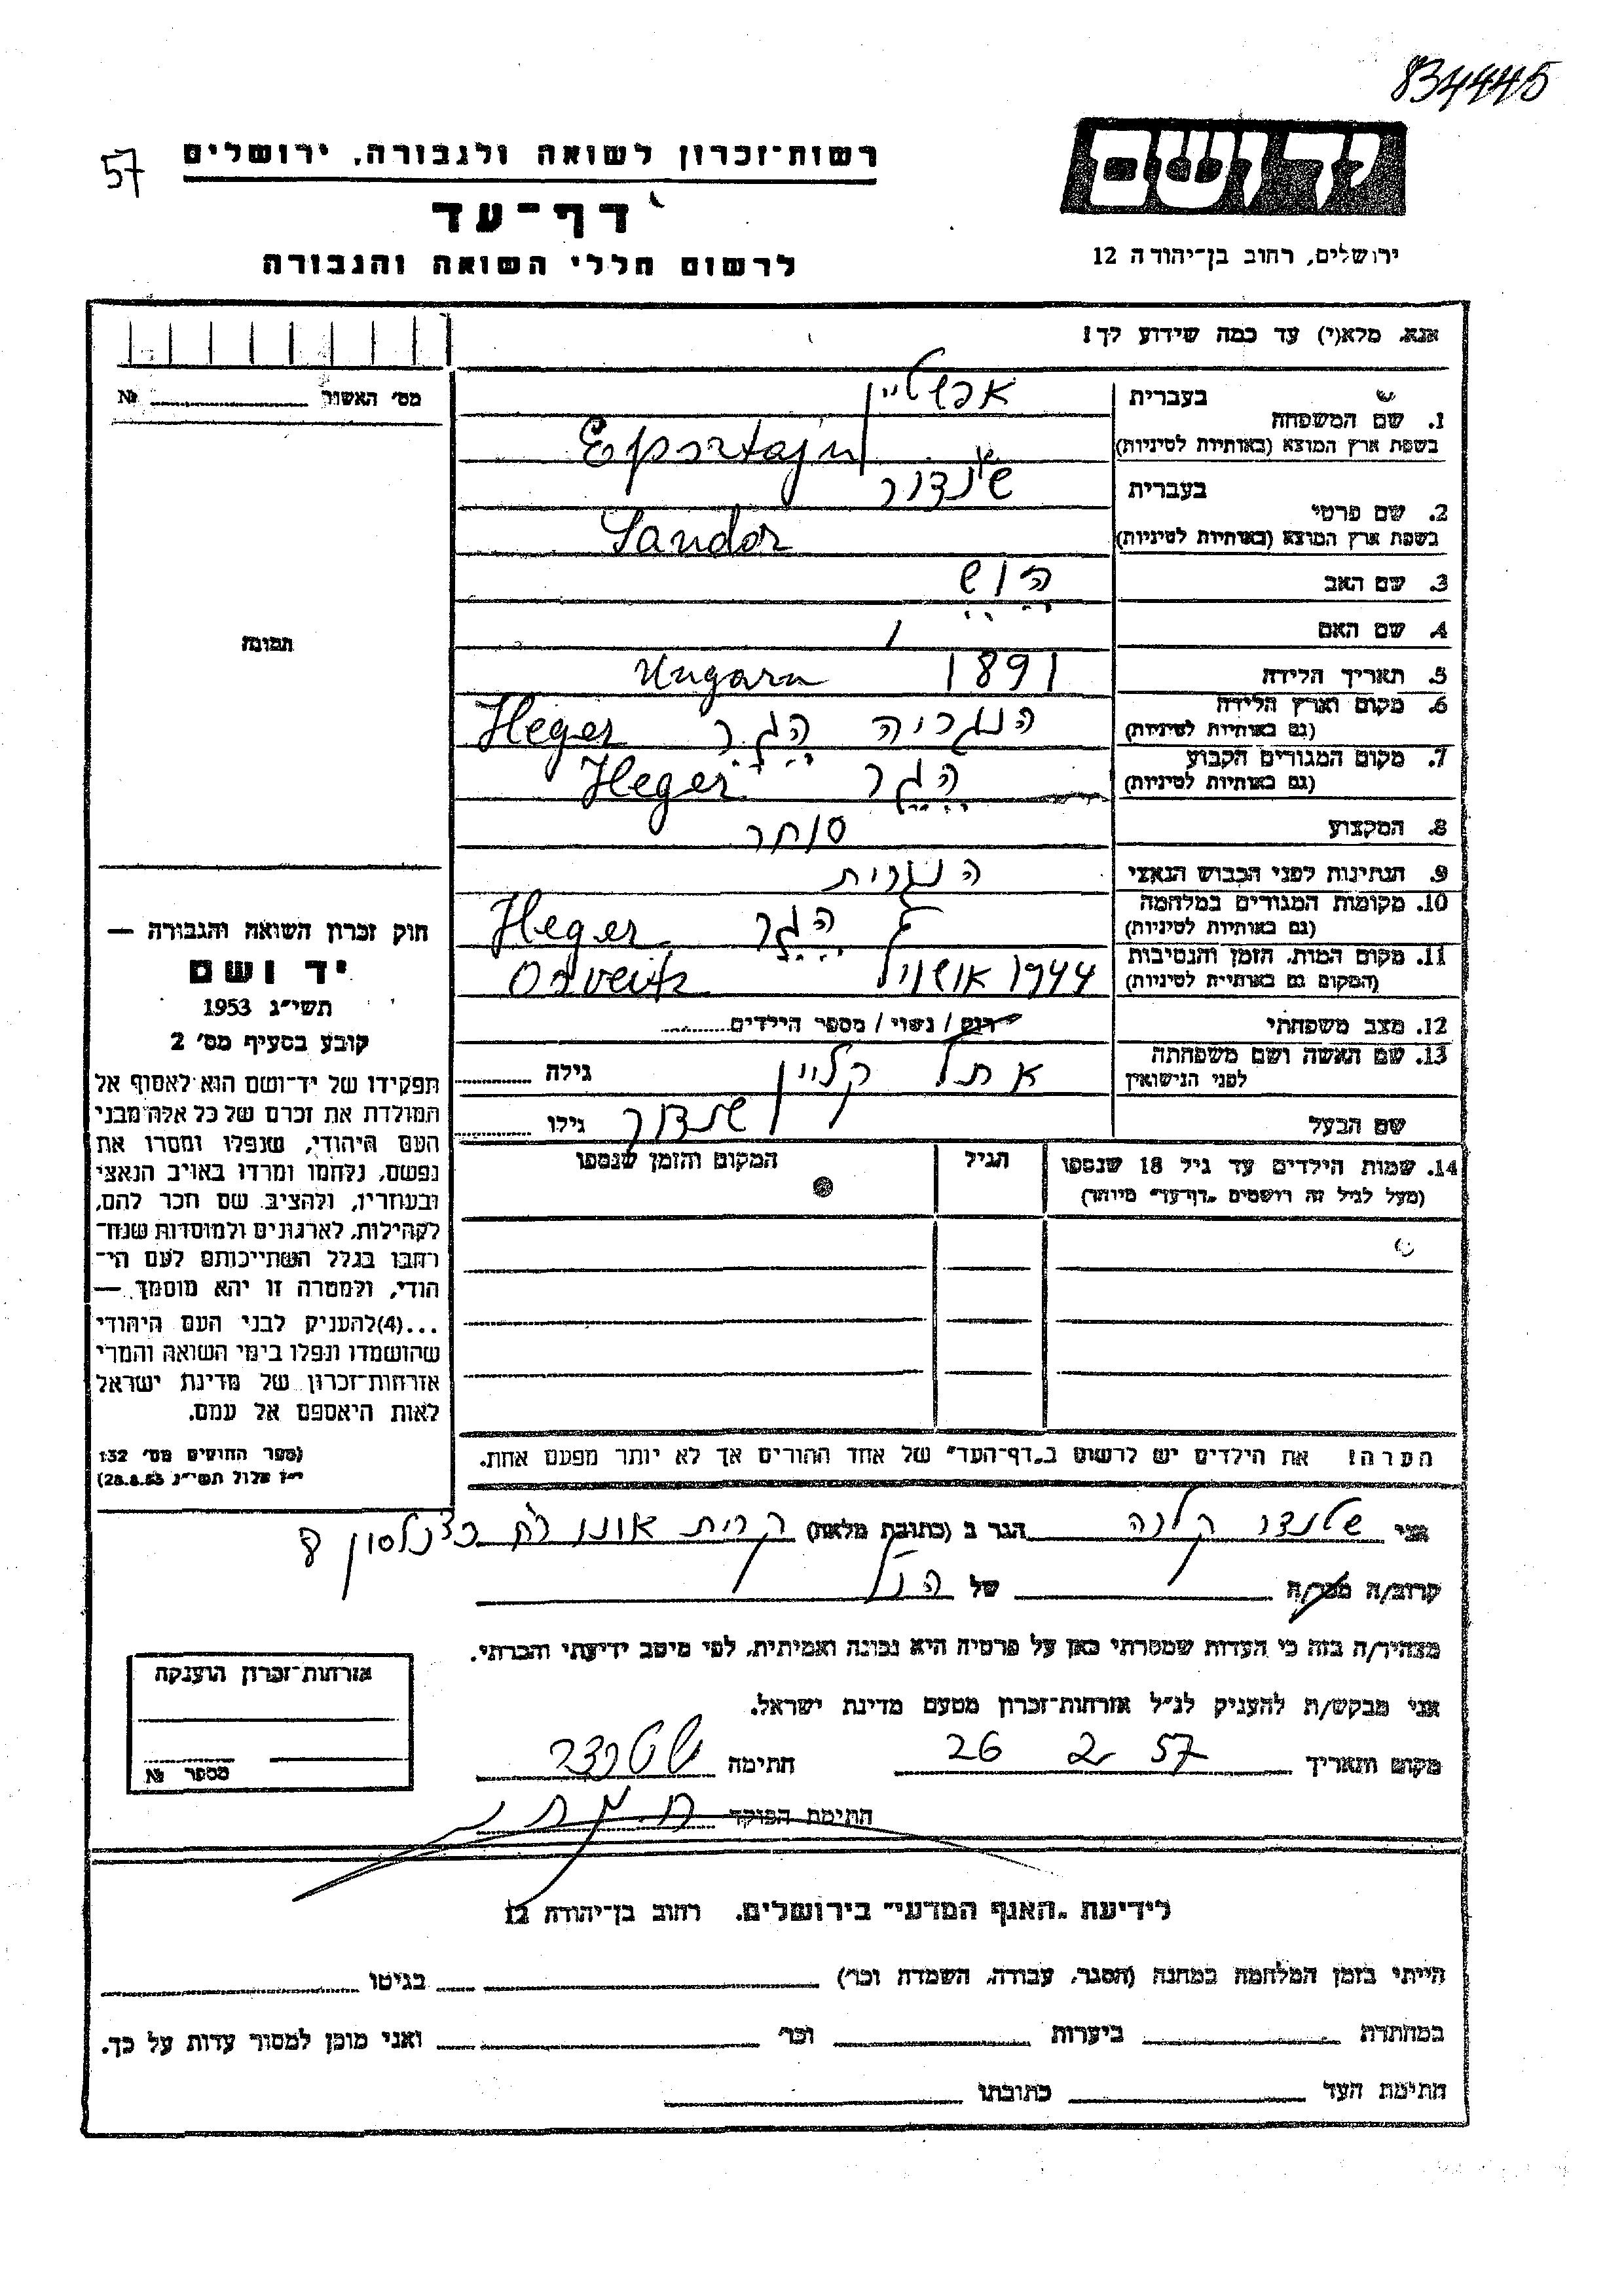 834445
57
רשות־זכרון לשואה ולגבורה, ירושלים
דף־עד
לרשום חללי השואה והגבורה
יד ושם
ירושלים, רחוב בן־יהודה 12
אנא, מלא(י) עד כמה שידוע לך!
מס' האשור № 
1. שם המשפחה
בעברית אפשטיין
בשפת ארץ המוצא (באותיות לטיניות) Epsztajn
2. שם פרטי
בעברית שנדור
בשפת ארץ המוצא (באותיות לטיניות) Sandor
3. שם האב
4. שם האם
תמונה
5. תאריך הלידה 1891 Ungarn
6. מקום וארץ הלידה
(גם באותיות לטיניות) הונגריה הגר Heger
7. מקום המגורים הקבוע
(גם באותיות לטיניות) הגר Heger
8. המקצוע סוחר
9. הנתינות לפני הכבוש הנאצי הונגרית
10. מקומות המגורים במלחמה
(גם באותיות לטיניות) הגר Heger
11. מקום המות, הזמן והנסיבות
(המקום גם באותיות לטיניות) 1944
12. מצב משפחתי רווק / נשוי / מספר הילדים
13. שם האשה ושם משפחתה
לפני הנישואין אתל קליין גילה
שם הבעל שנדור גילו
14. שמות הילדים עד גיל 18 שנספו
(מעל לגיל זה רושמים "דף־עד" מיוחד)
הגיל
המקום והזמן שנספו
הערה! את הילדים יש לרשום ב"דף־העד" של אחד ההורים אך לא יותר מפעם אחת.
חוק זכרון השואה והגבורה —
יד ושם
תשי"ג 1953
קובע בסעיף מס' 2
תפקידו של יד־ושם הוא לאסוף אל
המולדת את זכרם של כל אלה מבני
העם היהודי, שנפלו ומסרו את
נפשם, נלחמו ומרדו באויב הנאצי
ובעוזריו, ולהציב שם וזכר להם,
לקהילות, לארגונים ולמוסדות שנח־
רבו בגלל השתייכותם לעם הי־
הודי, ולמטרה זו יהא מוסמך —
...(4) להעניק לבני העם היהודי
שהושמדו ונפלו בימי השואה והמרי
אזרחות־זכרון של מדינת ישראל
לאות היאספם אל עמם.
(ספר החוקים מס' 132
י"ז אלול תשי"ג 28.8.53)
אני הגר ב (כתובת מלאה) קרית אונו רח כצנלסון
קרוב/ה מכר/ה של הנ"ל
מצהיר/ה בזה כי העדות שמסרתי כאן על פרטיה היא נכונה ואמיתית, לפי מיטב ידיעתי והכרתי.
אני מבקש/ת להעניק לנ"ל אזרחות־זכרון מטעם מדינת ישראל.
מקום ותאריך 26 2 57 חתימה
חתימת הפוקד
אזרחות־זכרון הוענקה
מספר №
לידיעת "האגף המדעי" בירושלים, רחוב בן־יהודה 12
הייתי בזמן המלחמה במחנה (הסגר, עבודה, השמדה וכו') בגיטו
במחתרת ביערות וכו' ואני מוכן למסור עדות על כך.
חתימת העד כתובתו